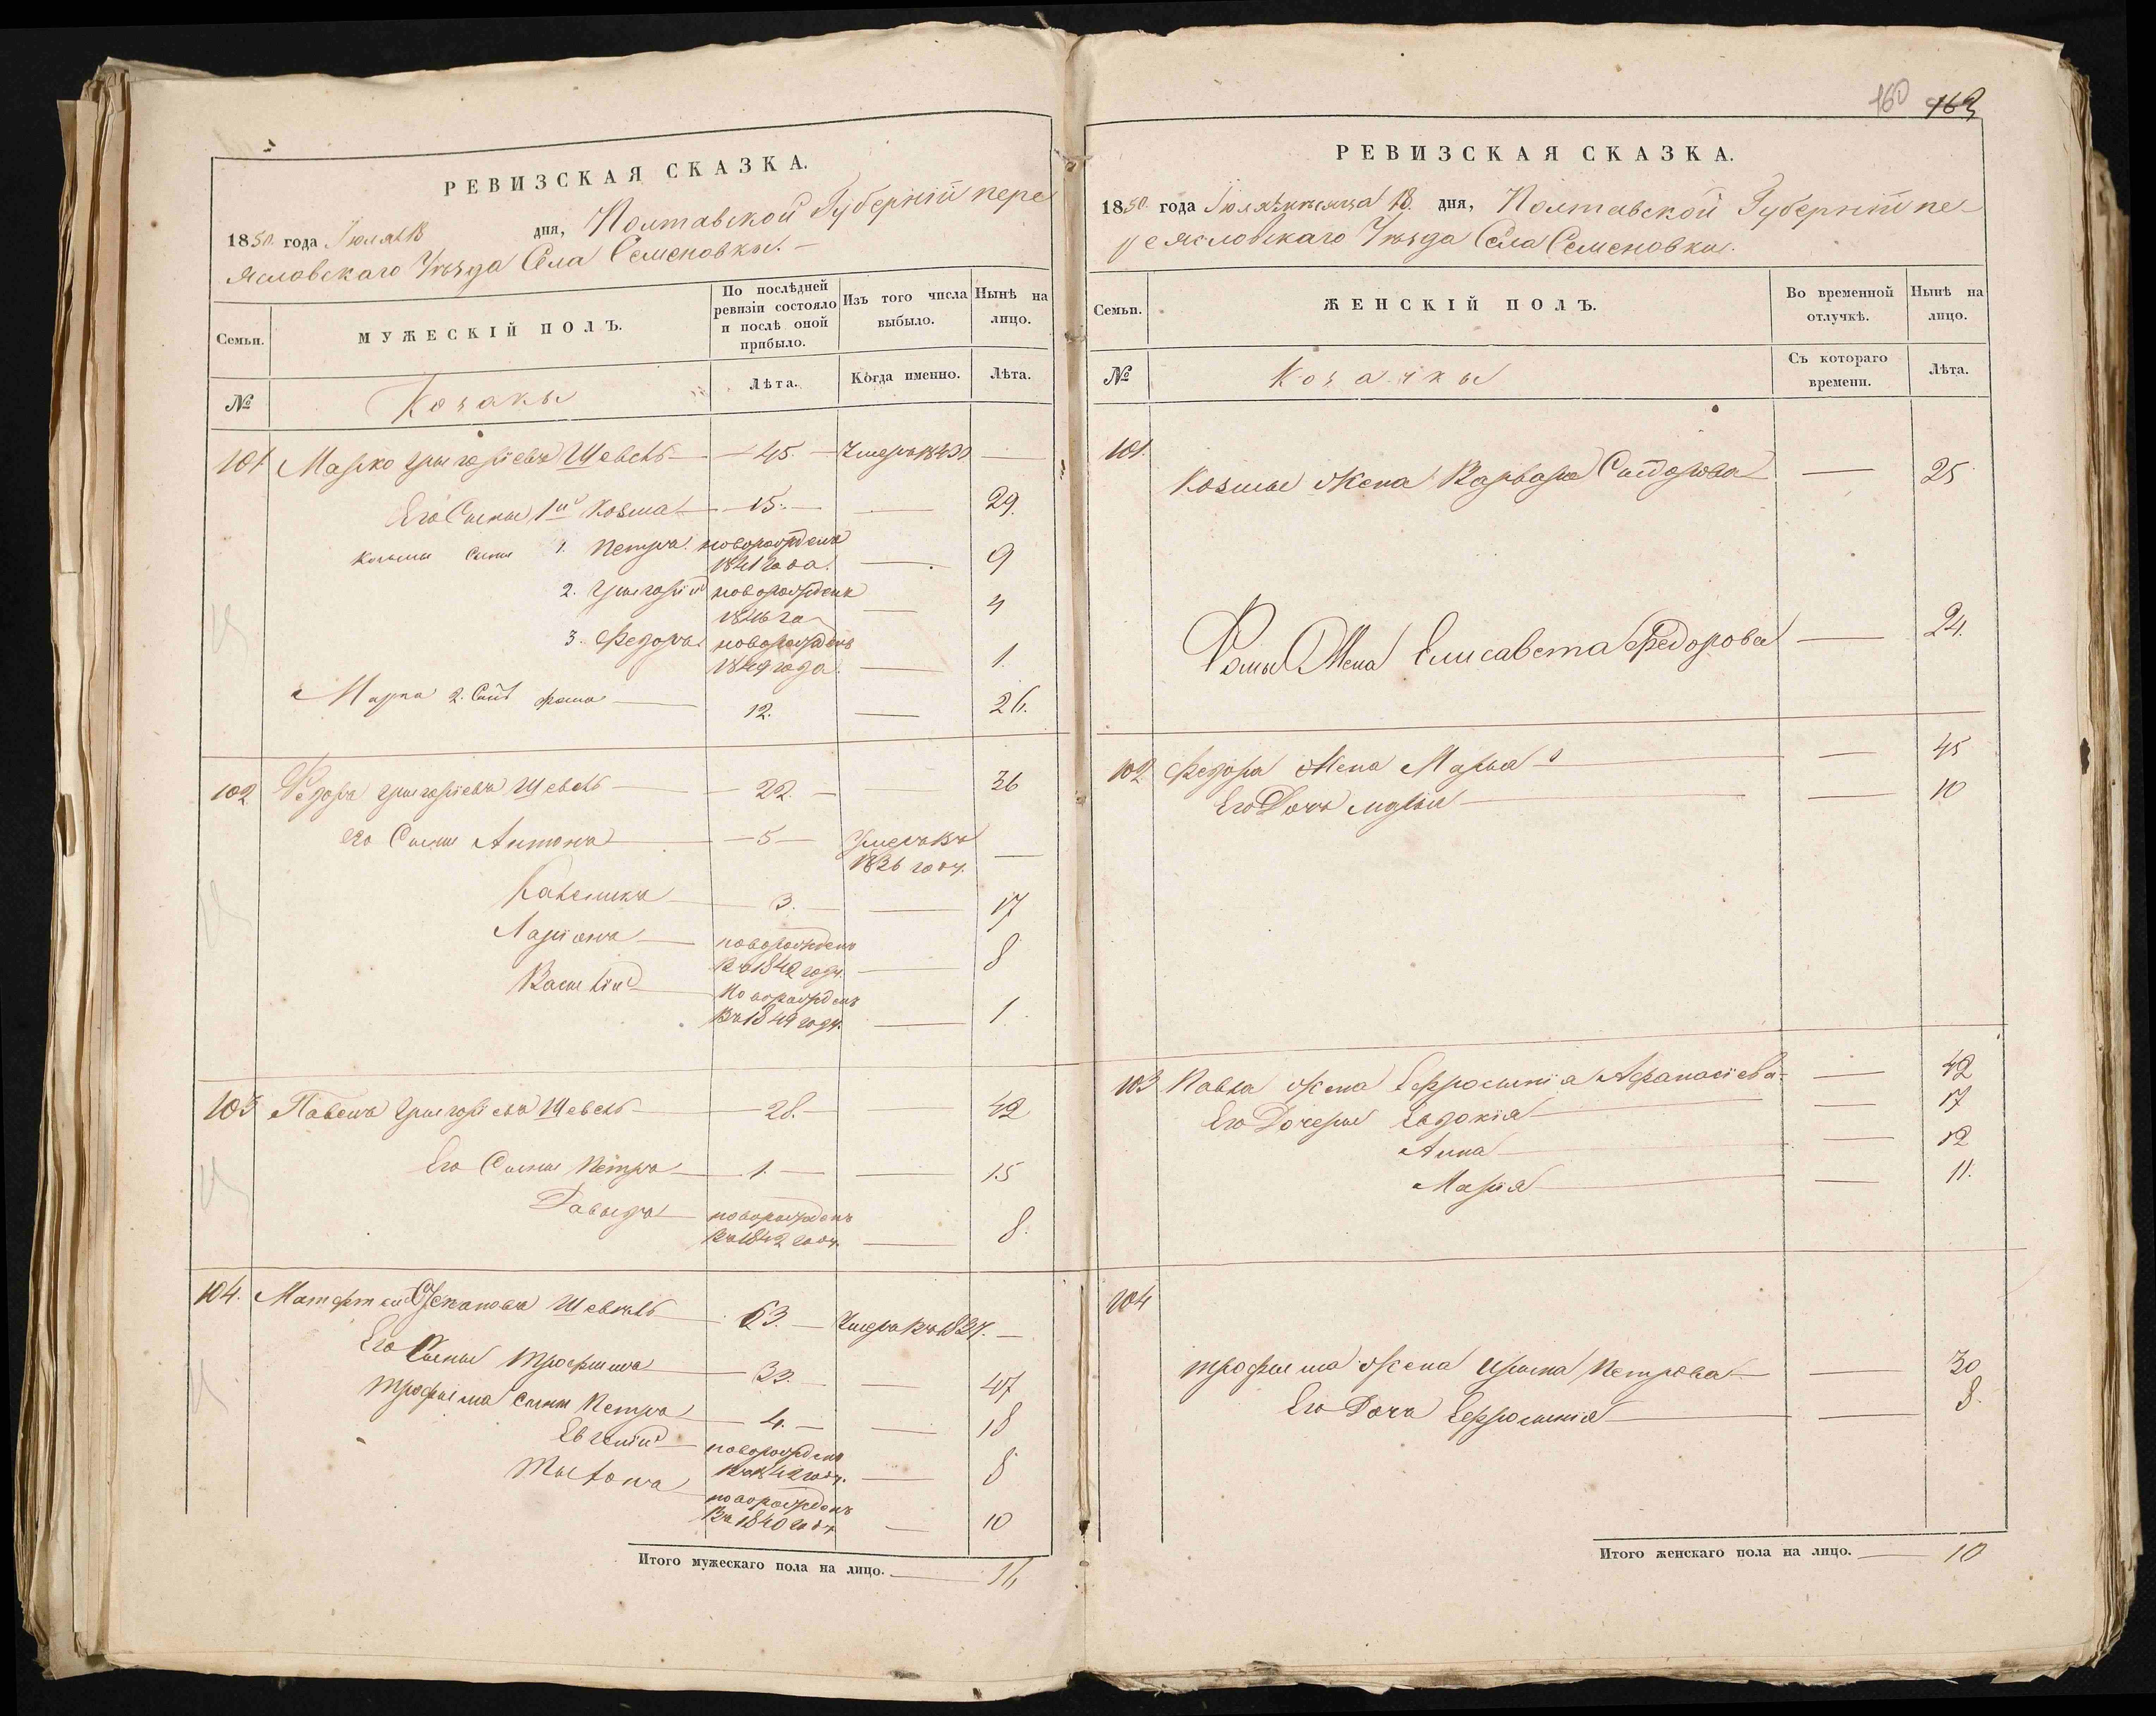 РЕВИЗСКАЯ СКАЗКА.
1850 года Июля 18 дня, Полтавской Губерніи пере
ясловскаго Уѣзда Села Семеновки.
Семьи.
МУЖЕСКІЙ ПОЛЪ.
По послѣдней ревизіи состояло и послѣ оной прибыло.
Изъ того числа выбыло.
Нынѣ на лицо.
№
Козаки
Лѣта.
Когда именно.
Лѣта.
101 Марко Григоріевъ — 45. — Умеръ —
Его Сыны 1й Козма — 15. — — 29.
Козмы сыны 1. Петръ новорожденъ 1841 года. — 9
2. Григорій новорожденъ 1846 го — 4
3. Федоръ новорожденъ 1849 года. — 1.
Марка 2. Сынъ Фома — 12. — 26.
102 Федоръ Григоріевъ — 22. — 36
его Сыны Антонъ — 5 — Умеръ въ 1836 году. —
3. — — 17
Ларіонъ — новорожденъ въ 1842 году. — 8
Василій новорожденъ въ 1849 году. — 1.
103 Павелъ Григоріевъ — 28. — 42
Его Сыны Петръ — 1. — — 15
Давыдъ — новорожденъ въ 1842 году. — 8.
104. — 63. — Умеръ въ —
Его Сыны Трофимъ — 33. — — 47
Трофима сыны Петръ — 4. — — 18
Евгеній — новорожденъ въ 1842 году. — 8
новорожденъ въ 1840 году — 10
Итого мужескаго пола на лицо. — 16
160 163
РЕВИЗСКАЯ СКАЗКА.
1850 года Июля мѣсяца 18. дня, Полтавской Губерніи пе-
реясловскаго Уѣзда Села Семеновки.
Семьи.
ЖЕНСКІЙ ПОЛЪ.
Во временной отлучкѣ.
Нынѣ на лицо.
№
Козачки
Съ котораго времени.
Лѣта.
101.
Козмы Жена Варвара Сидорова — 25
Фомы Жена Елисавета Федорова — 24.
102 Федора Жена Марья — — 45
Его Дочь — — 10
103 Павла жена Ефросинія Афанасіева — 42
Его Дочери Евдокія — — 17
Анна — — 12
Марія — — 11.
104
Трофима жена Ирина Петрова — 30
Его Дочь Ефросинія — — 8.
Итого женскаго пола на лицо. — 10